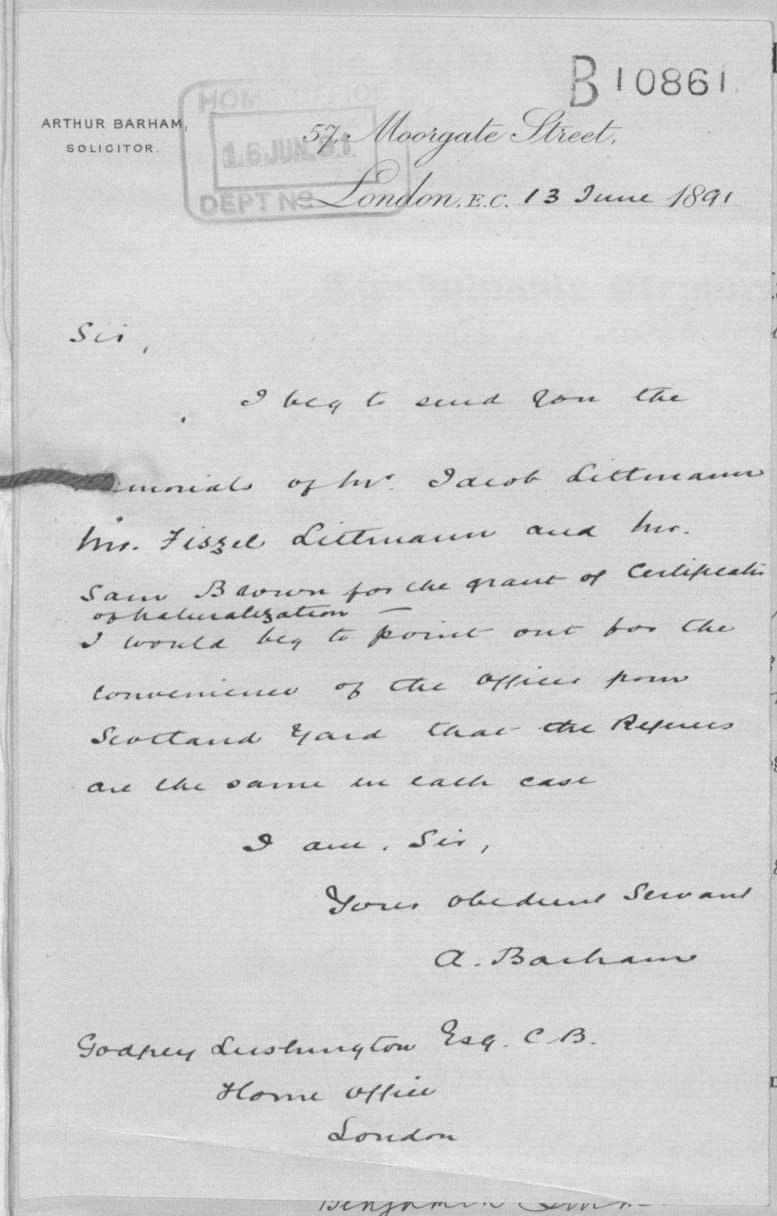 B 10861
ARTHUR BARHAM,
SOLICITOR.
HOME OFFICE
16 JUN. 91
DEPT NO
57, Moorgate Street,
London, E.C. 13 June 1891
Sir,
I beg to send you the
Memorials of Mr. Jacob Littmann
Mr. Fiszel Littmann and Mr.
Sam Brown for the grant of Certificates
of Naturalization —
I would beg to point out for the
convenience of the Officer from
Scotland Yard that the Referees
are the same in each case
I am, Sir,
Your obedient Servant
A. Barham
Godfrey Lushington Esq. C.B.
Home Office
London
Benjamin